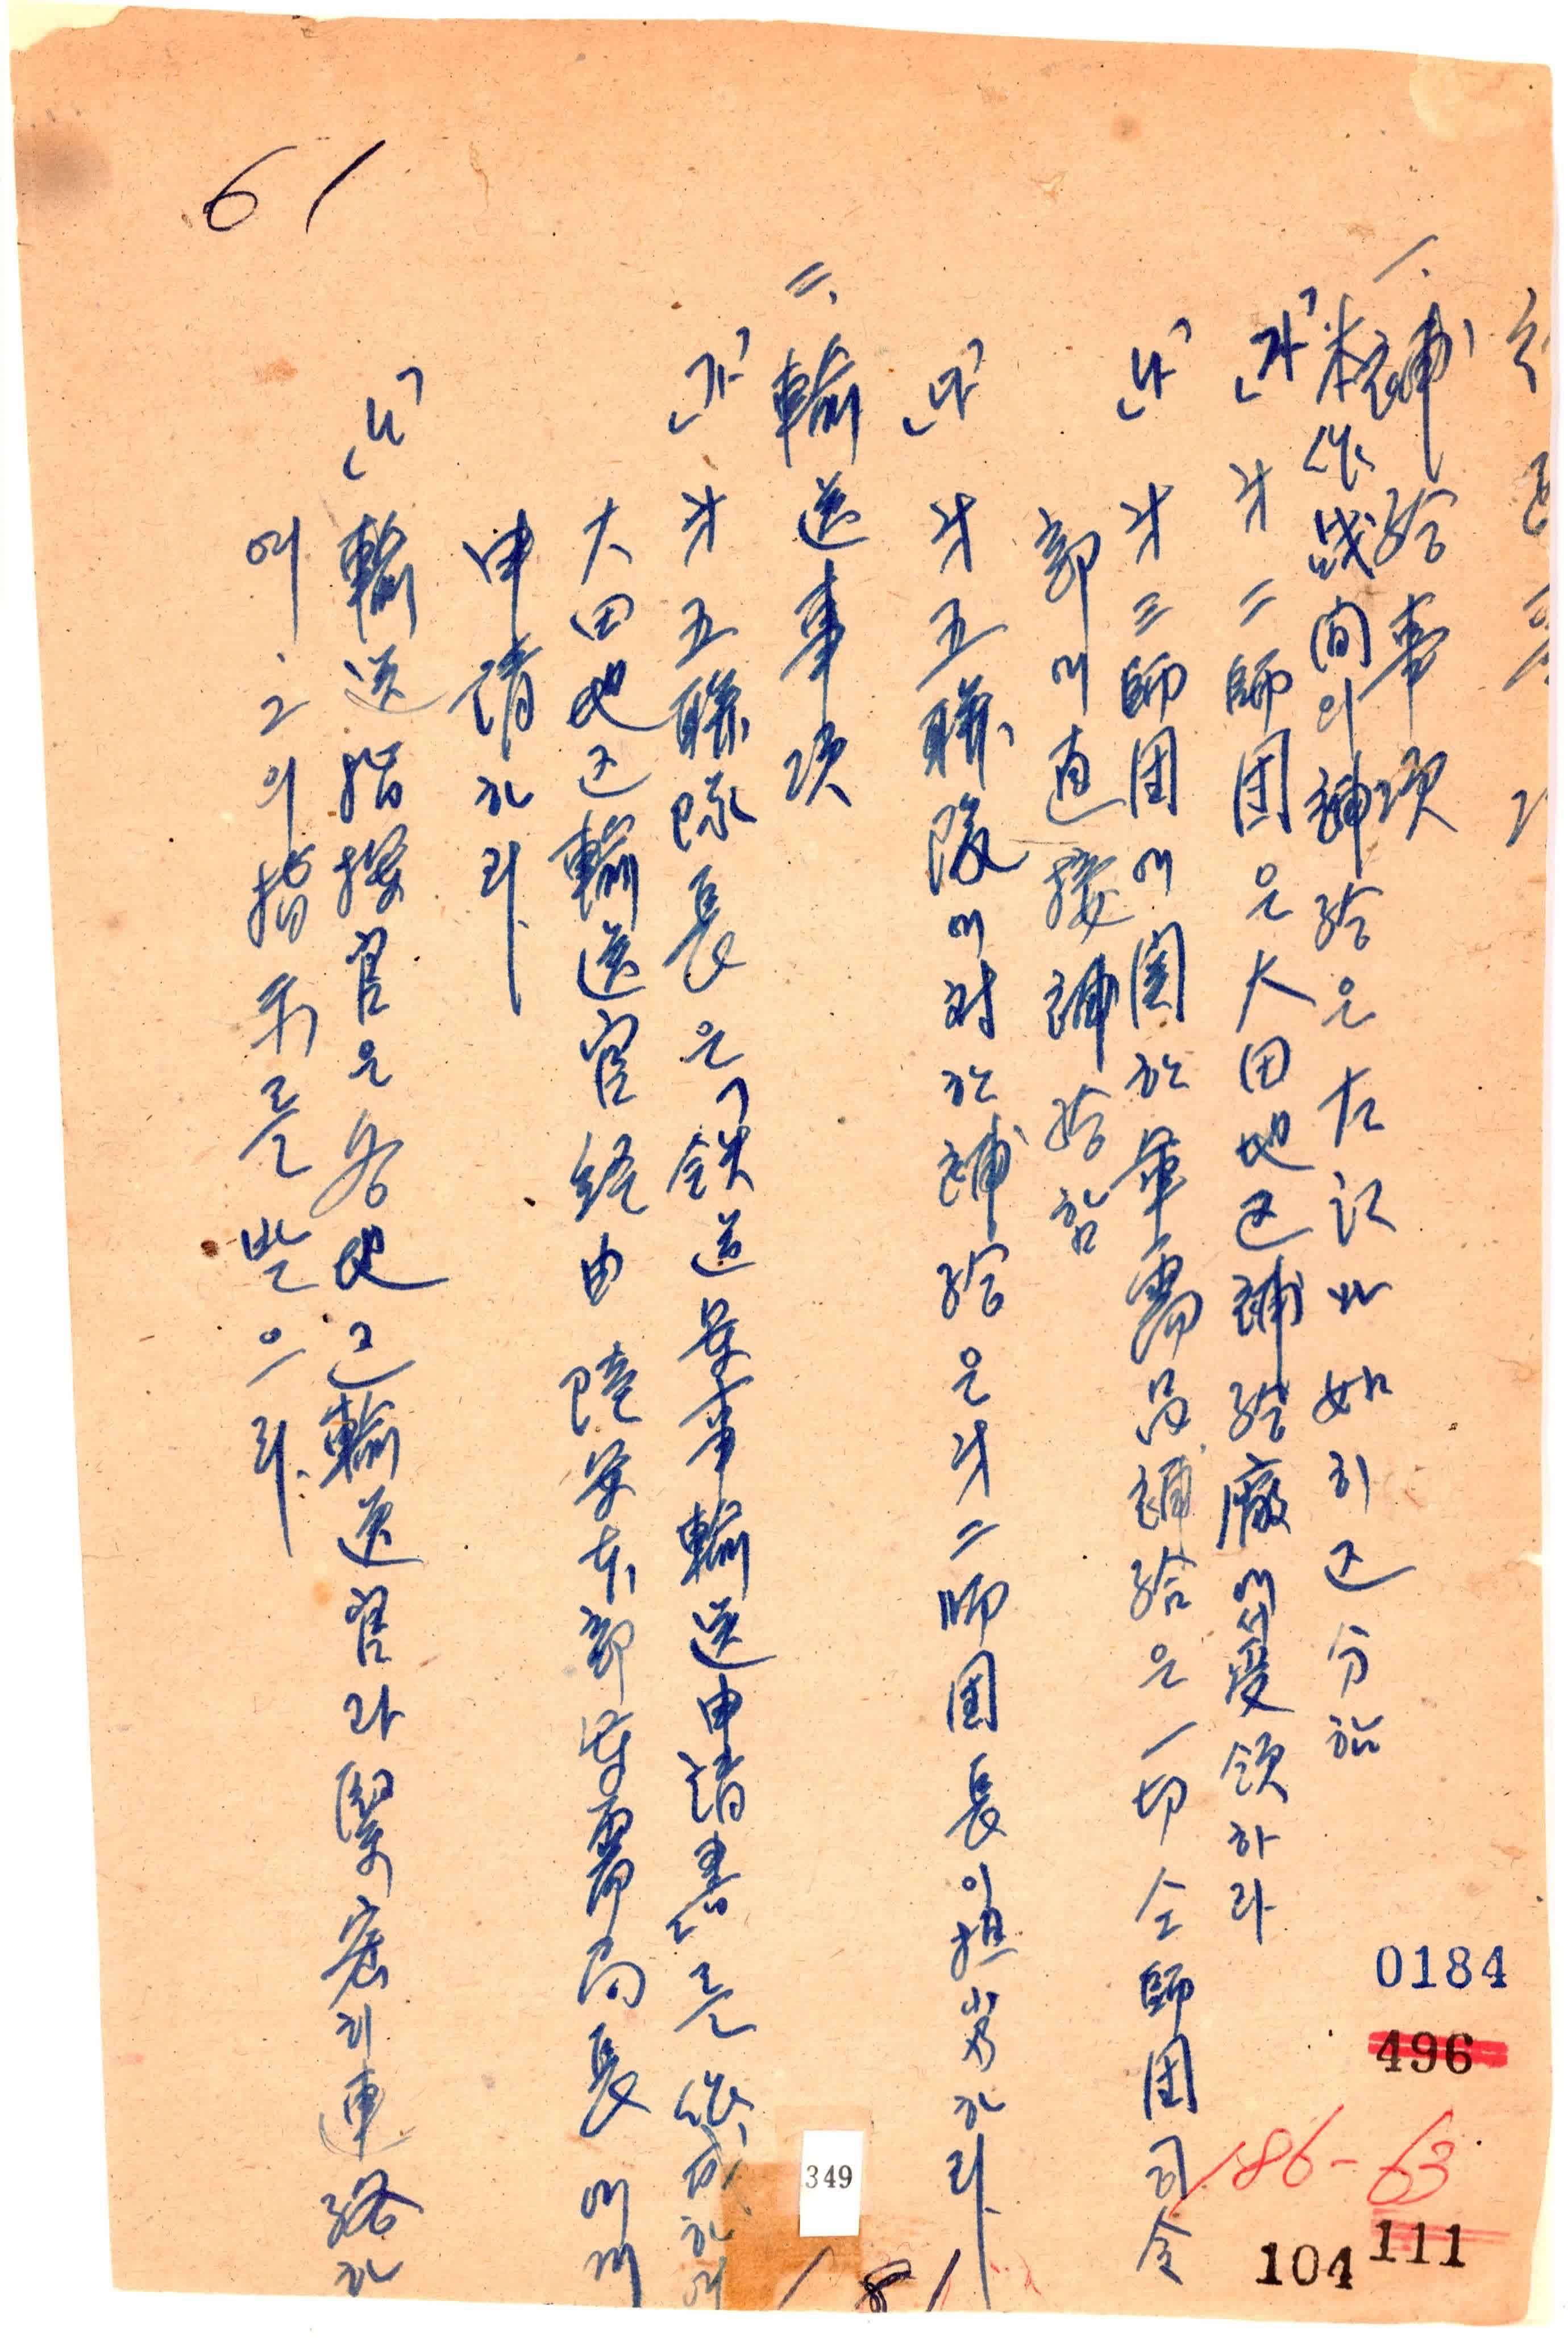 61
一. 補給事項
本作战間의 補給은 左記와 如히 区分함
「가」 第二師団은 大田地区補給廠에서 受領하라
「나」 第三師団에 関한 軍需品 補給은 一切 仝師団司令
部에 直接 補給함
「다」 第五聯隊에 対한 補給은 第二師団長이 担当하라
二. 輸送事項
「가」 第五聯隊長은 鉄道軍事輸送申請書를 作成하여
大田地区輸送官 経由 陸軍本部 軍需局長에게
申請하라
「나」 輸送指揮官은 各地区輸送官과 緊密히 連絡하
여 그의 指示를 받으라
0184
496
186-63
111
104
349
181